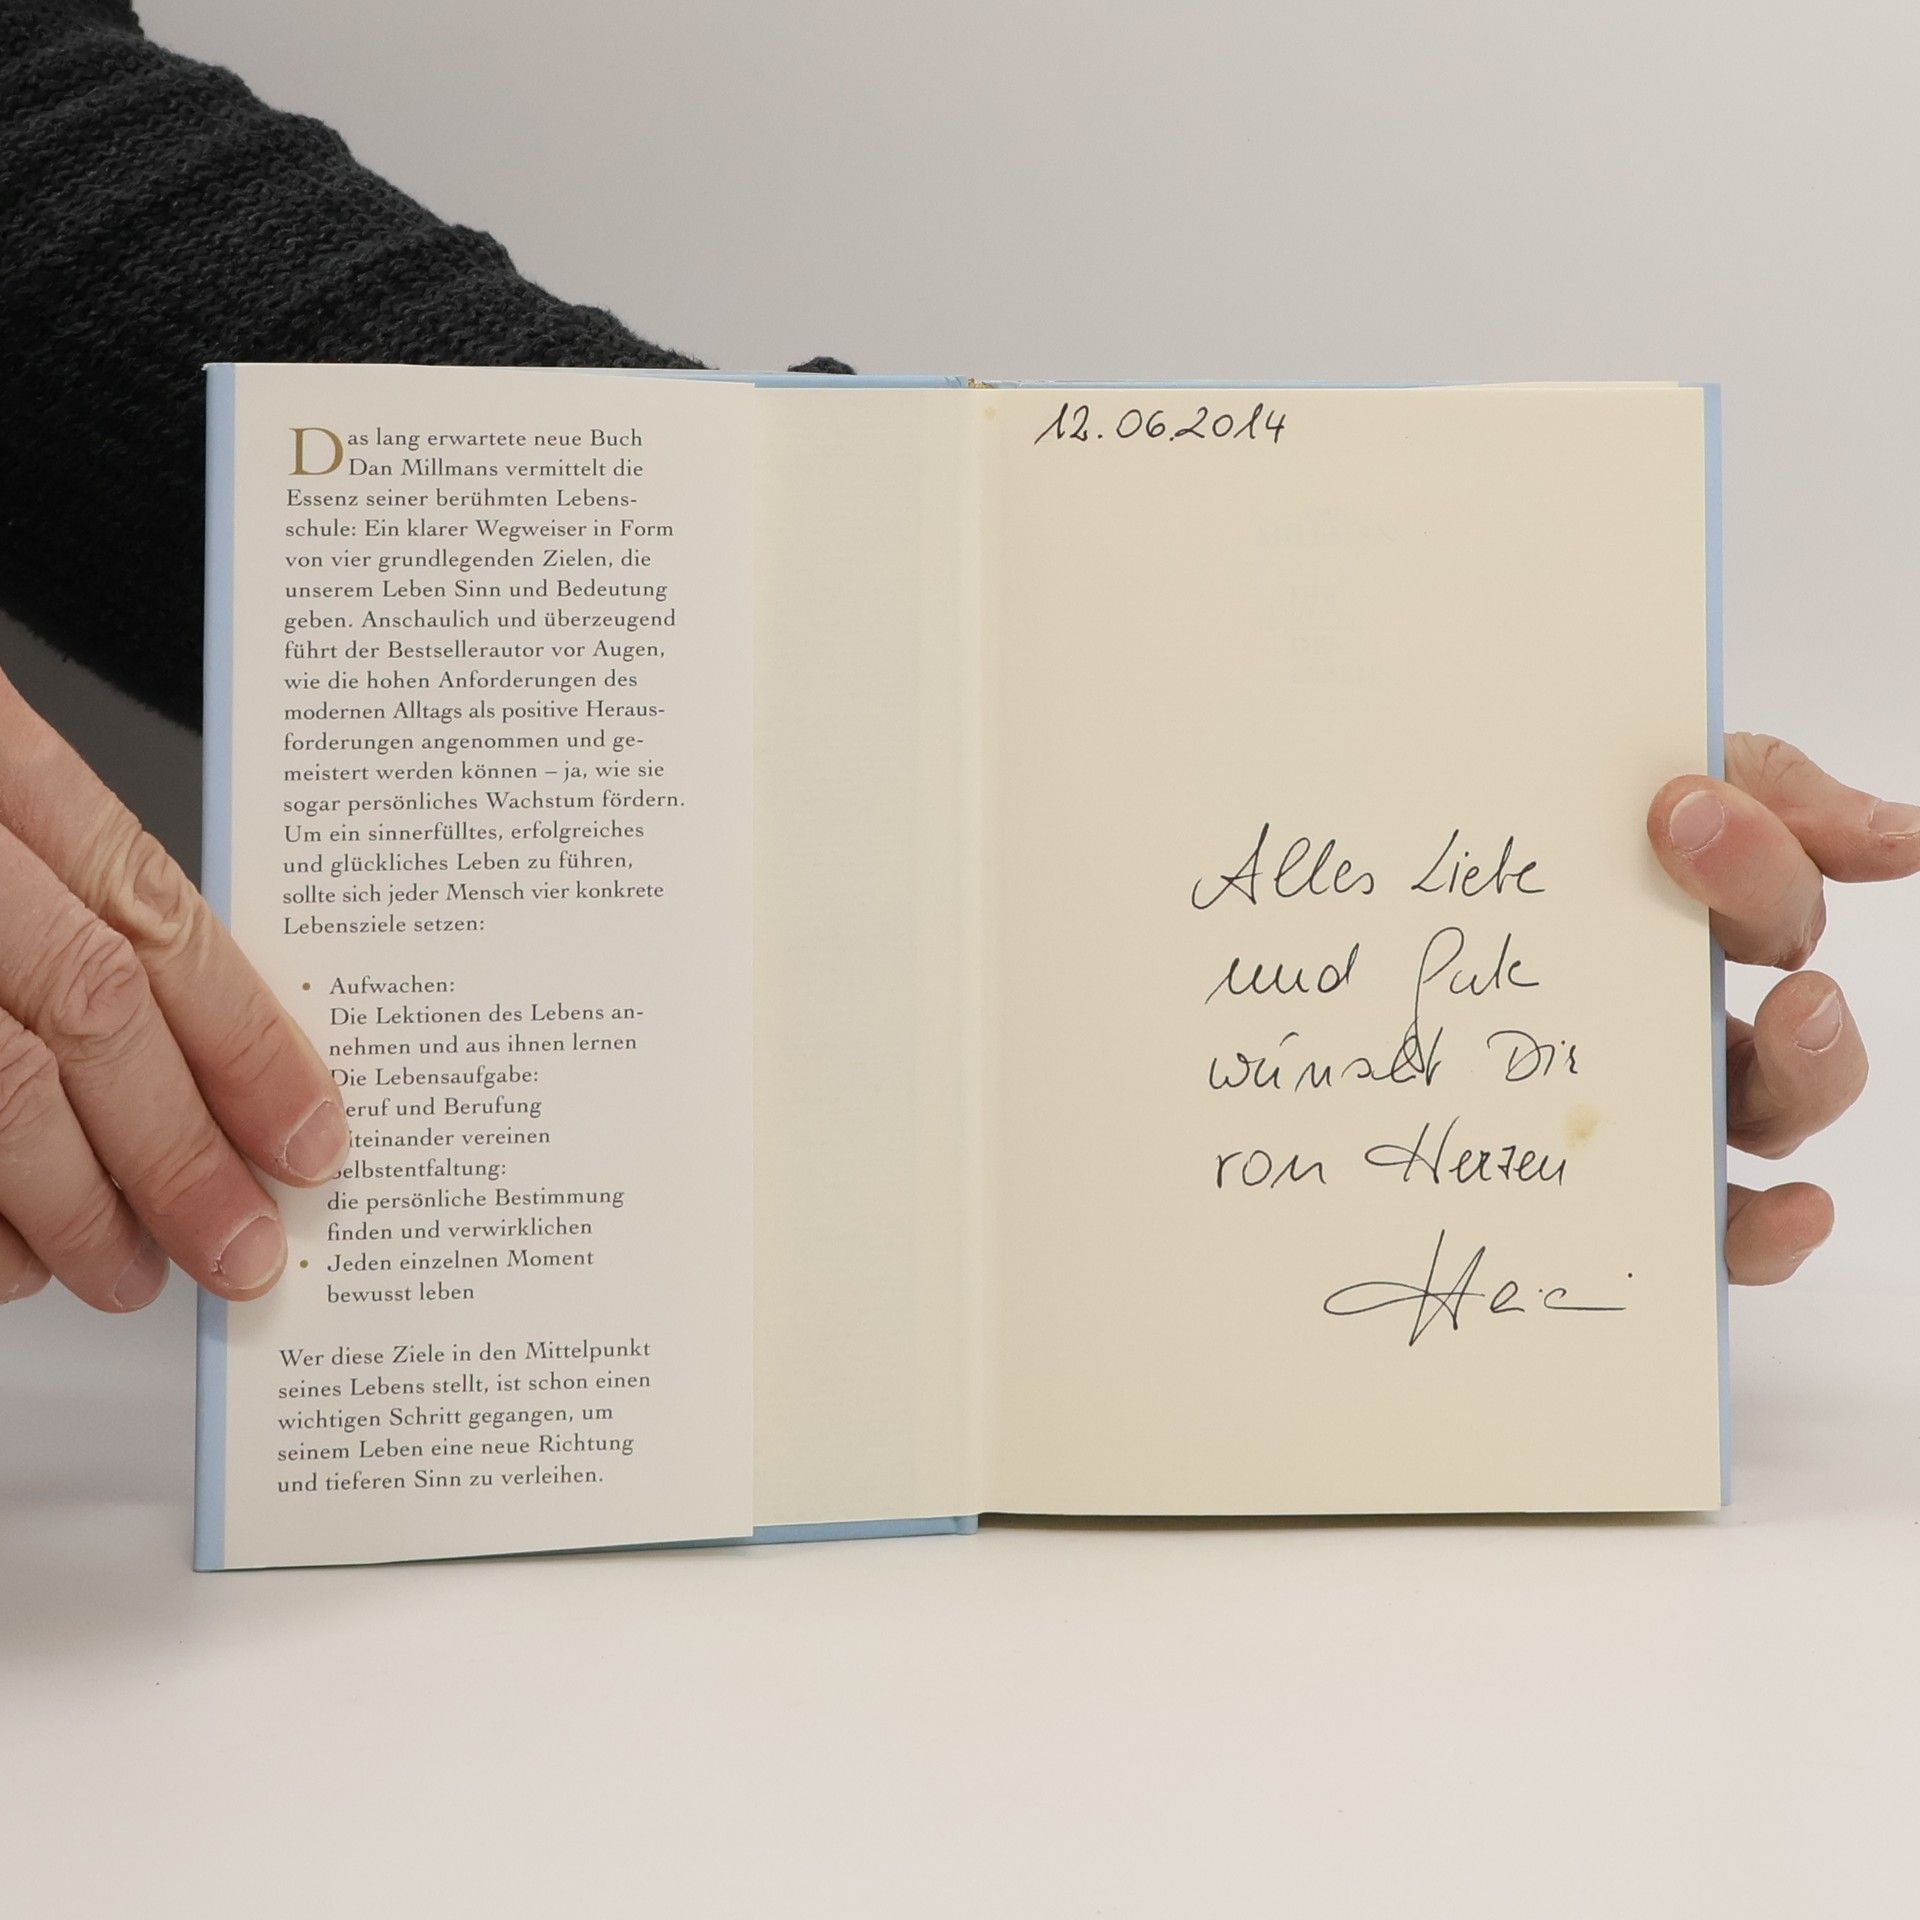 Das lang erwartete neue Buch
Dan Millmans vermittelt die
Essenz seiner berühmten Lebens-
schule: Ein klarer Wegweiser in Form
von vier grundlegenden Zielen, die
unserem Leben Sinn und Bedeutung
geben. Anschaulich und überzeugend
führt der Bestsellerautor vor Augen,
wie die hohen Anforderungen des
modernen Alltags als positive Heraus-
forderungen angenommen und ge-
meistert werden können – ja, wie sie
sogar persönliches Wachstum fördern.
Um ein sinnerfülltes, erfolgreiches
und glückliches Leben zu führen,
sollte sich jeder Mensch vier konkrete
Lebensziele setzen:
• Aufwachen:
Die Lektionen des Lebens an-
nehmen und aus ihnen lernen
Die Lebensaufgabe:
eruf und Berufung
iteinander vereinen
elbstentfaltung:
die persönliche Bestimmung
finden und verwirklichen
• Jeden einzelnen Moment
bewusst leben
Wer diese Ziele in den Mittelpunkt
seines Lebens stellt, ist schon einen
wichtigen Schritt gegangen, um
seinem Leben eine neue Richtung
und tieferen Sinn zu verleihen.
12.06.2014
Alles Liebe
und Gute
wünscht Dir
von Herzen